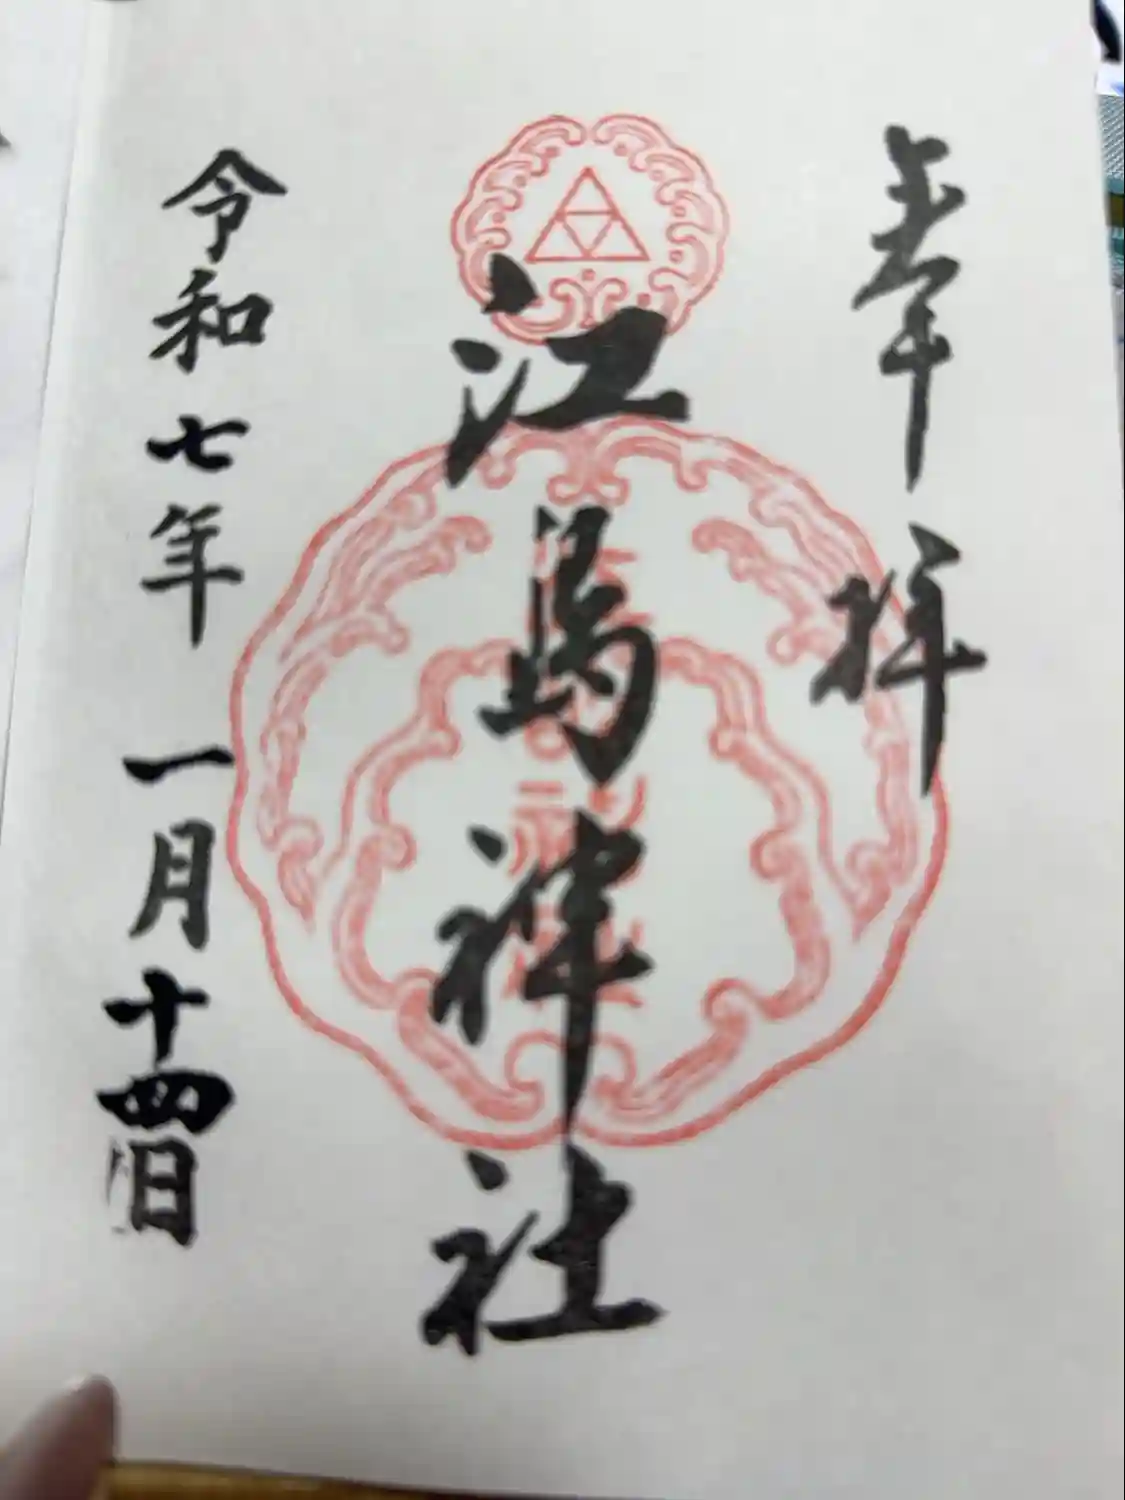 奉拝
江島神社
令和七年 一月十四日